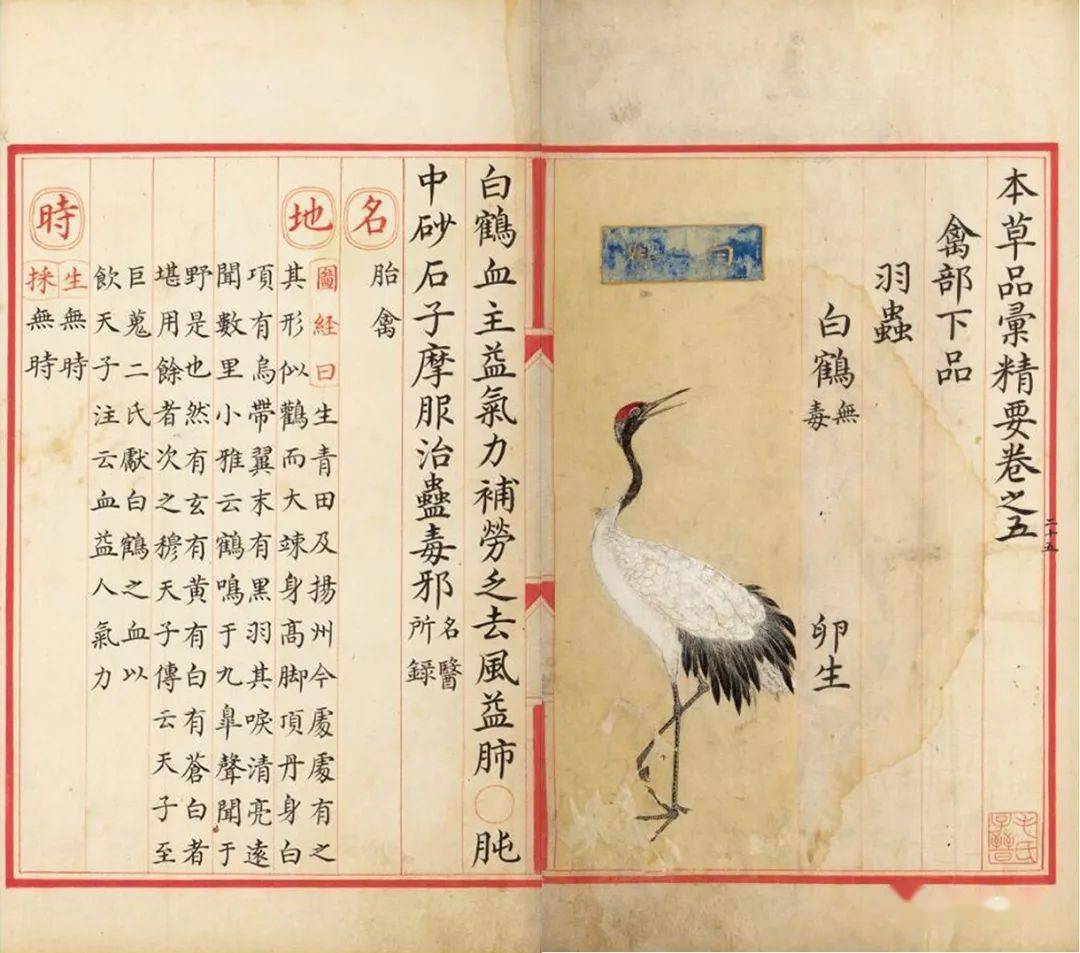 本草品彙精要卷之五
二十五
禽部下品
羽蟲
白鶴無毒
卵生
白
白鶴血主益氣力補勞乏去風益肺〇肫
中砂石子摩服治蠱毒邪名醫所録
名
胎禽
地
圖経曰生青田及揚州今處處有之
其形似鸛而大竦身高脚頂丹身白
項有烏帶翼末有黑羽其唳清亮遠
聞數里小雅云鶴鳴于九臯聲聞于
野是也然有玄有黄有白有蒼白者
堪用餘者次之穆天子傳云天子至
巨蒐二氏獻白鶴之血以
飲天子注云血益人氣力
時
生無時
採無時
毛氏子晉